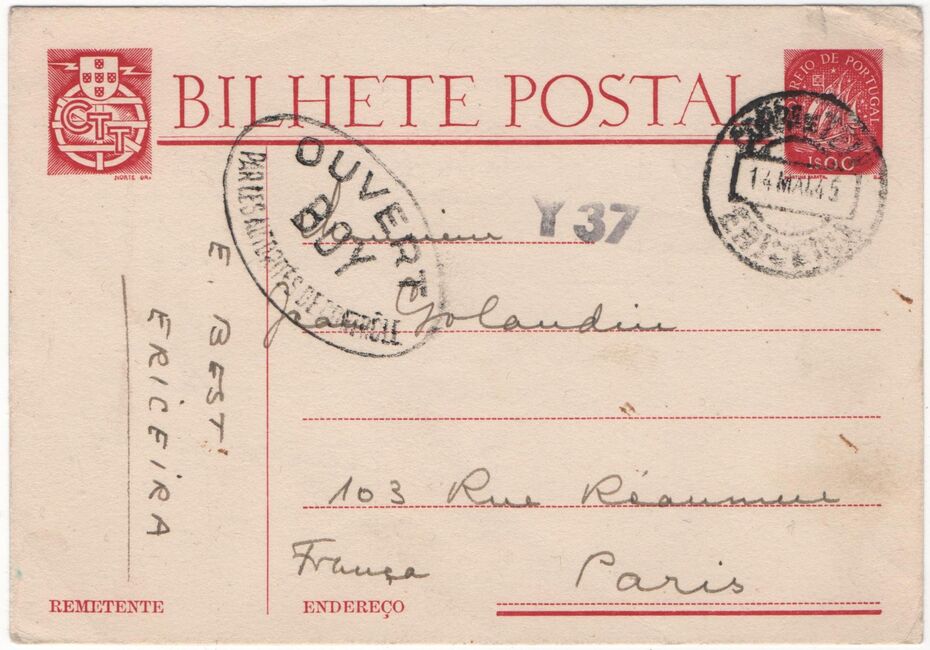 BILHETE POSTAL
CTT
NORTE GR.
CORREIO DE PORTUGAL
1$00
14 MAI.45
ERICEIRA
OUVERT
PAR LES AUTORITÉS DE CONTRÔLE
Y 37
Monsieur
Jean Golandin
103 Rue Réaumur
França
Paris
E. BEST
ERICEIRA
REMETENTE
ENDEREÇO